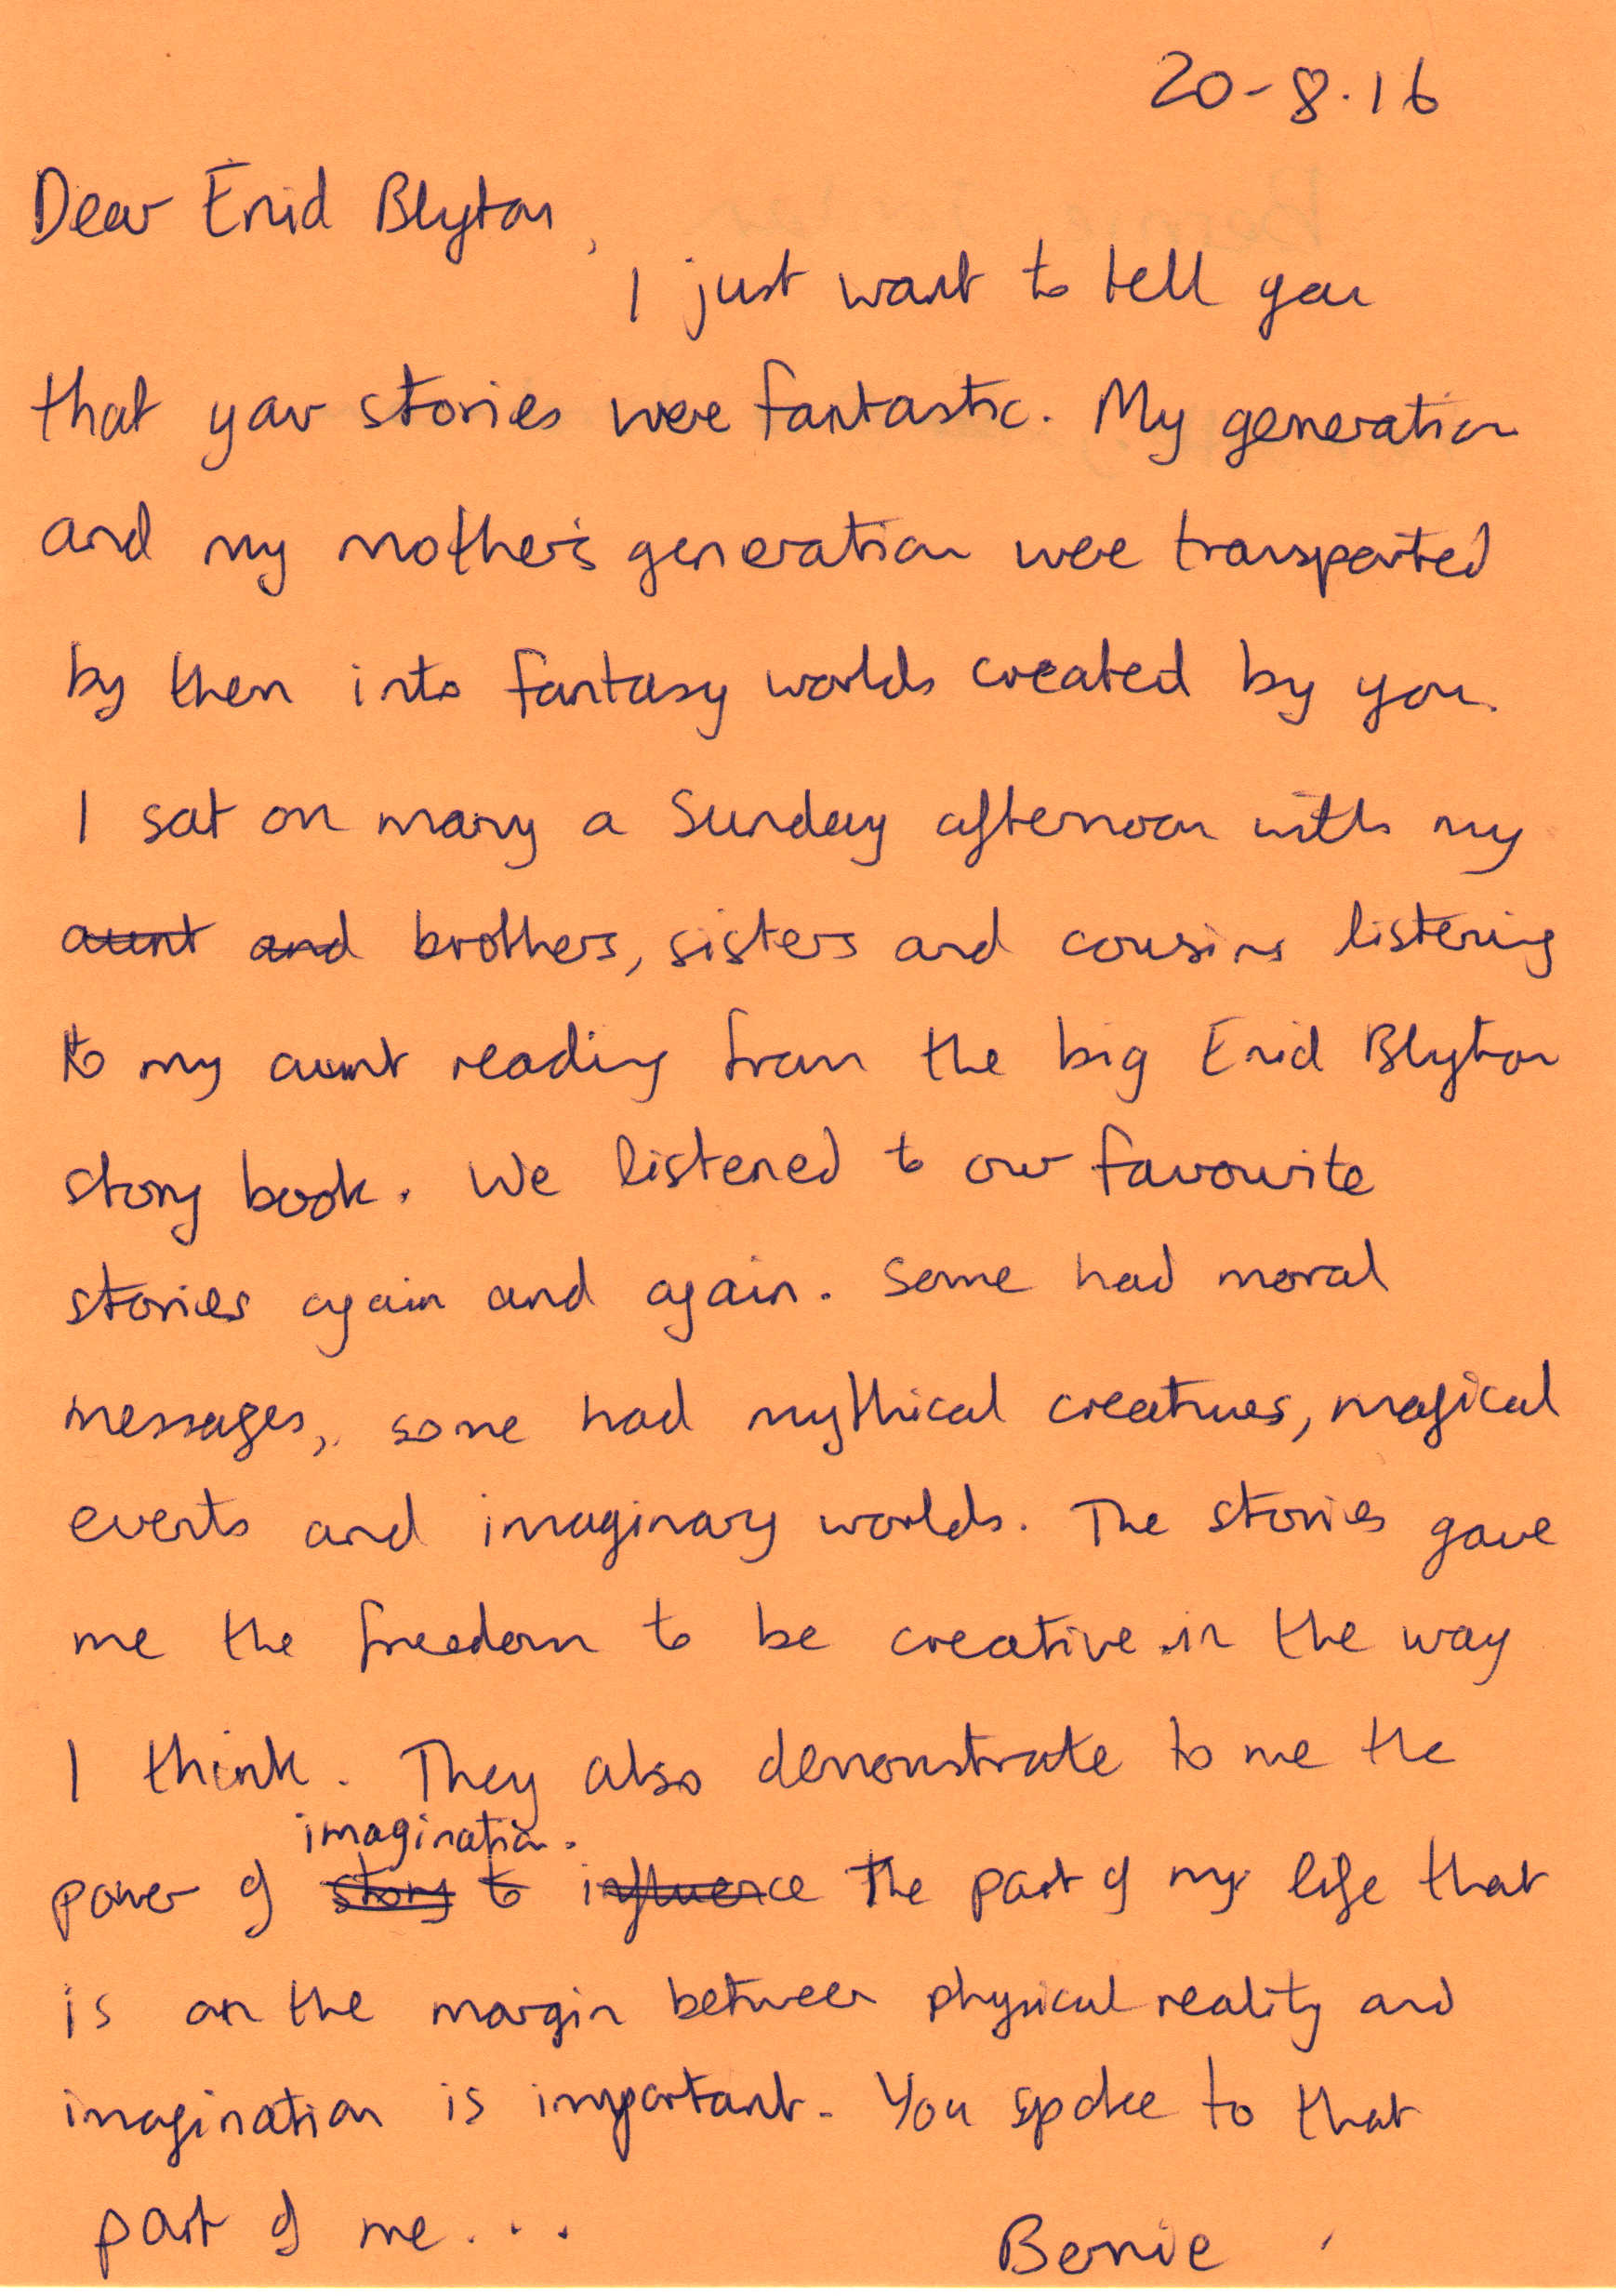 20-8.16
Dear Enid Blyton,
I just want to tell you
that your stories were fantastic. My generation
and my mother's generation were transported
by them into fantasy worlds created by you.
I sat on many a Sunday afternoon with my
aunt and brothers, sisters and cousins listening
to my aunt reading from the big Enid Blyton
story book. We listened to our favourite
stories again and again. Some had moral
messages, some had mythical creatures, magical
events and imaginary worlds. The stories gave
me the freedom to be creative in the way
I think. They also demonstrate to me the
imagination.
power of story to influence The part of my life that
is on the margin between physical reality and
imagination is important. You spoke to that
part of me...
Bernie